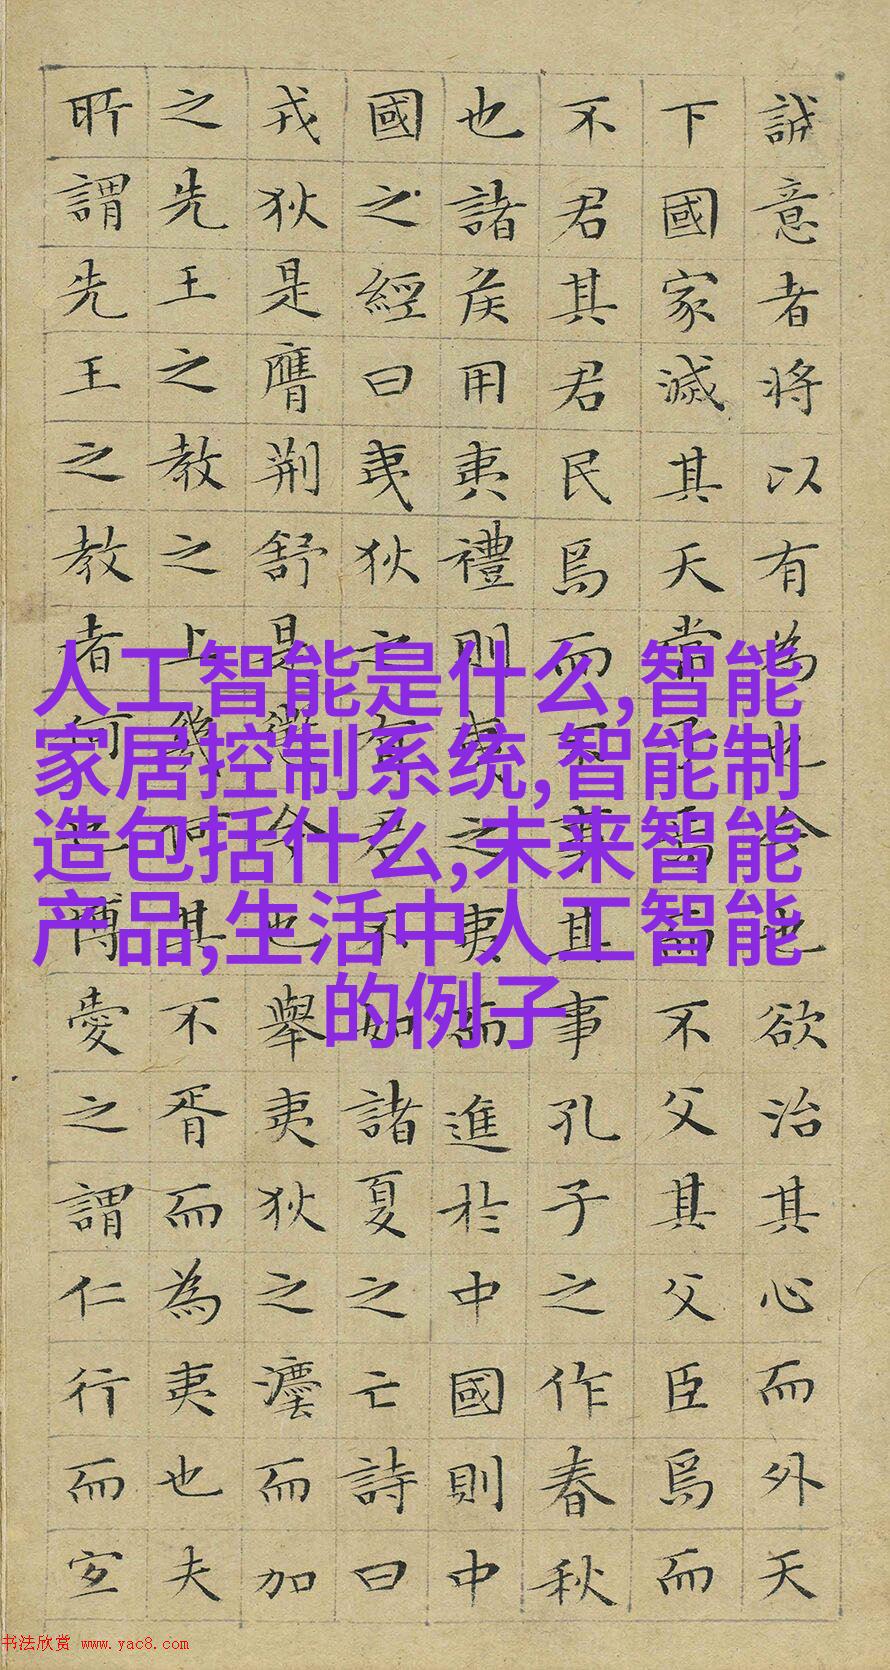 誠意者将以有為也今也欲治其心而外天
下國家滅其天常子焉而不父其父臣焉而
不君其君民焉而不事其事孔子之作春秋
也諸侯用夷禮則夷之夷而進於中國則中
國之經曰夷狄之有君不如諸夏之亡詩曰
戎狄是膺荆舒是懲今也舉夷狄之灋而加
之先王之教之上幾何其不胥而為夷也夫
所謂先王之教者何也博愛之謂仁行而宜
人工智能是什么,智能
家居控制系统,智能制
造包括什么,未来智能
产品,生活中人工智能
的例子
书法欣赏 www.yac8.com